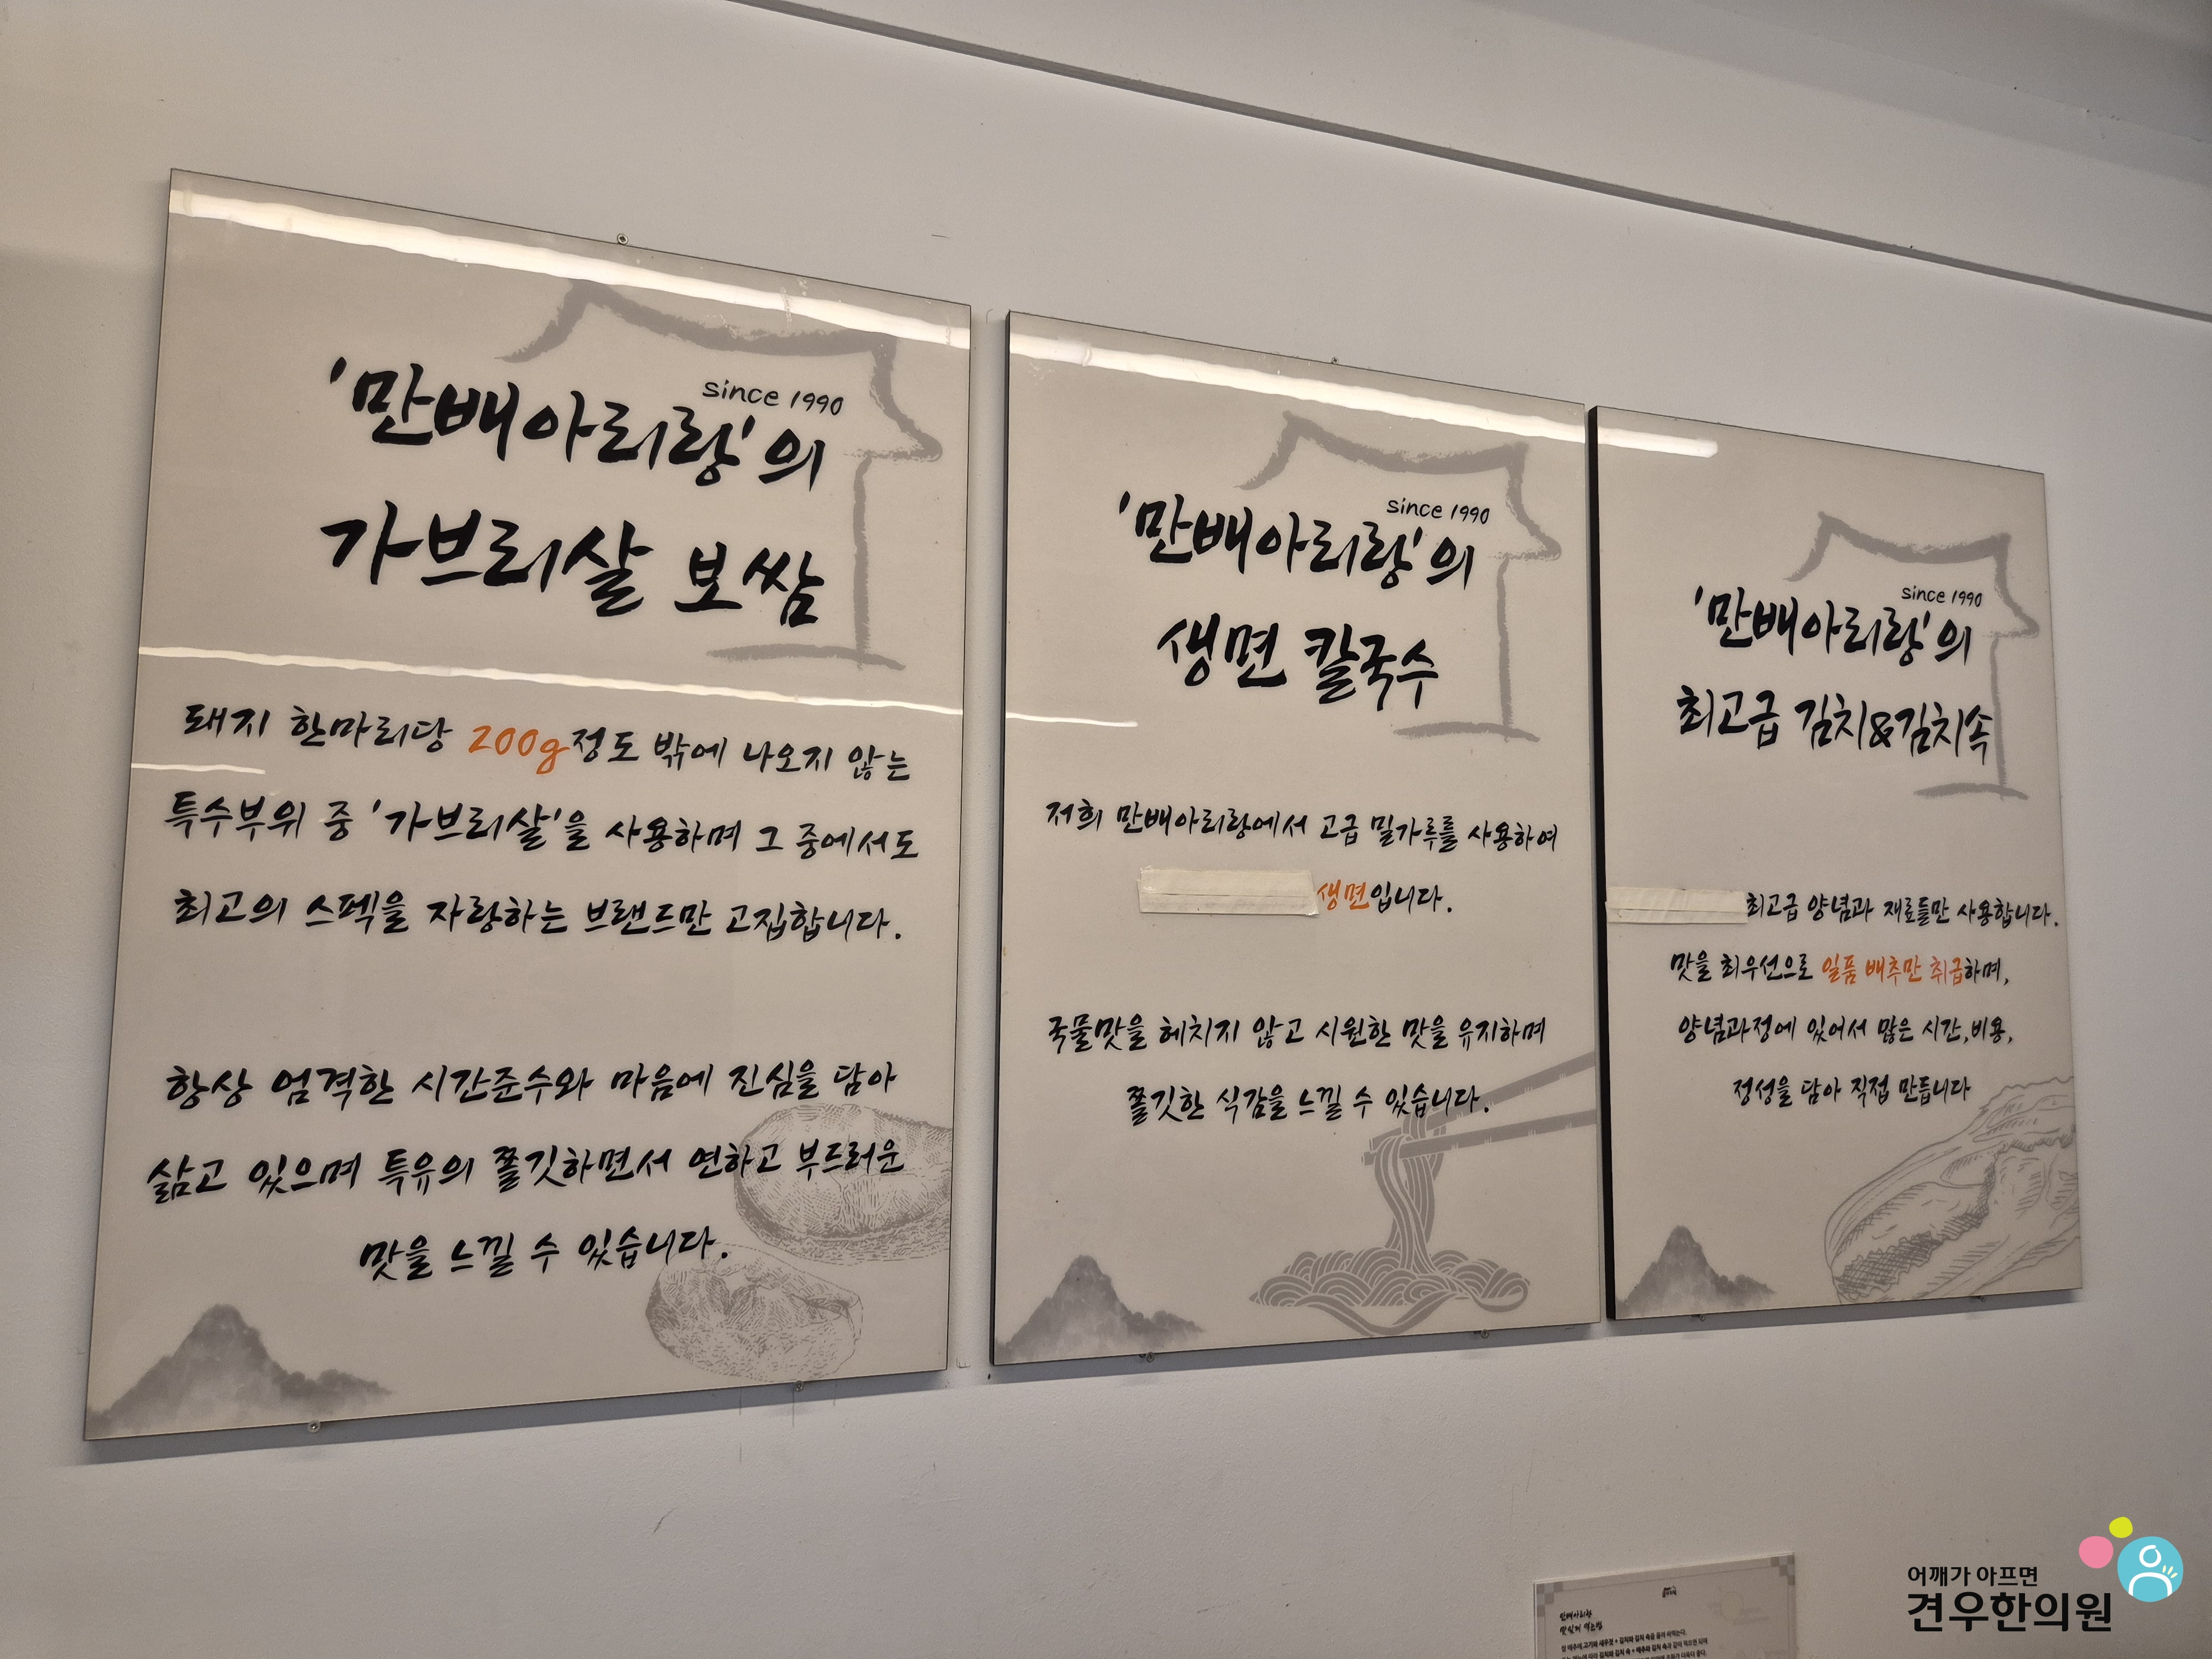 since 1990
'만배아리랑'의
가브리살 보쌈
돼지 한마리당 200g정도 밖에 나오지 않는
특수부위 중 '가브리살'을 사용하며 그 중에서도
최고의 스펙을 자랑하는 브랜드만 고집합니다.
항상 엄격한 시간준수와 마음에 진심을 담아
삶고 있으며 특유의 쫄깃하면서 연하고 부드러운
맛을 느낄 수 있습니다.
since 1990
'만배아리랑'의
생면 칼국수
저희 만배아리랑에서 고급 밀가루를 사용하여
생면입니다.
국물맛을 헤치지 않고 시원한 맛을 유지하며
쫄깃한 식감을 느낄 수 있습니다.
since 1990
'만배아리랑'의
최고급 김치&김치속
최고급 양념과 재료들만 사용합니다.
맛을 최우선으로 일품 배추만 취급하며,
양념과정에 있어서 많은 시간,비용,
정성을 담아 직접 만듭니다
만배아리랑
맛있게 먹는법
어깨가 아프면
견우한의원